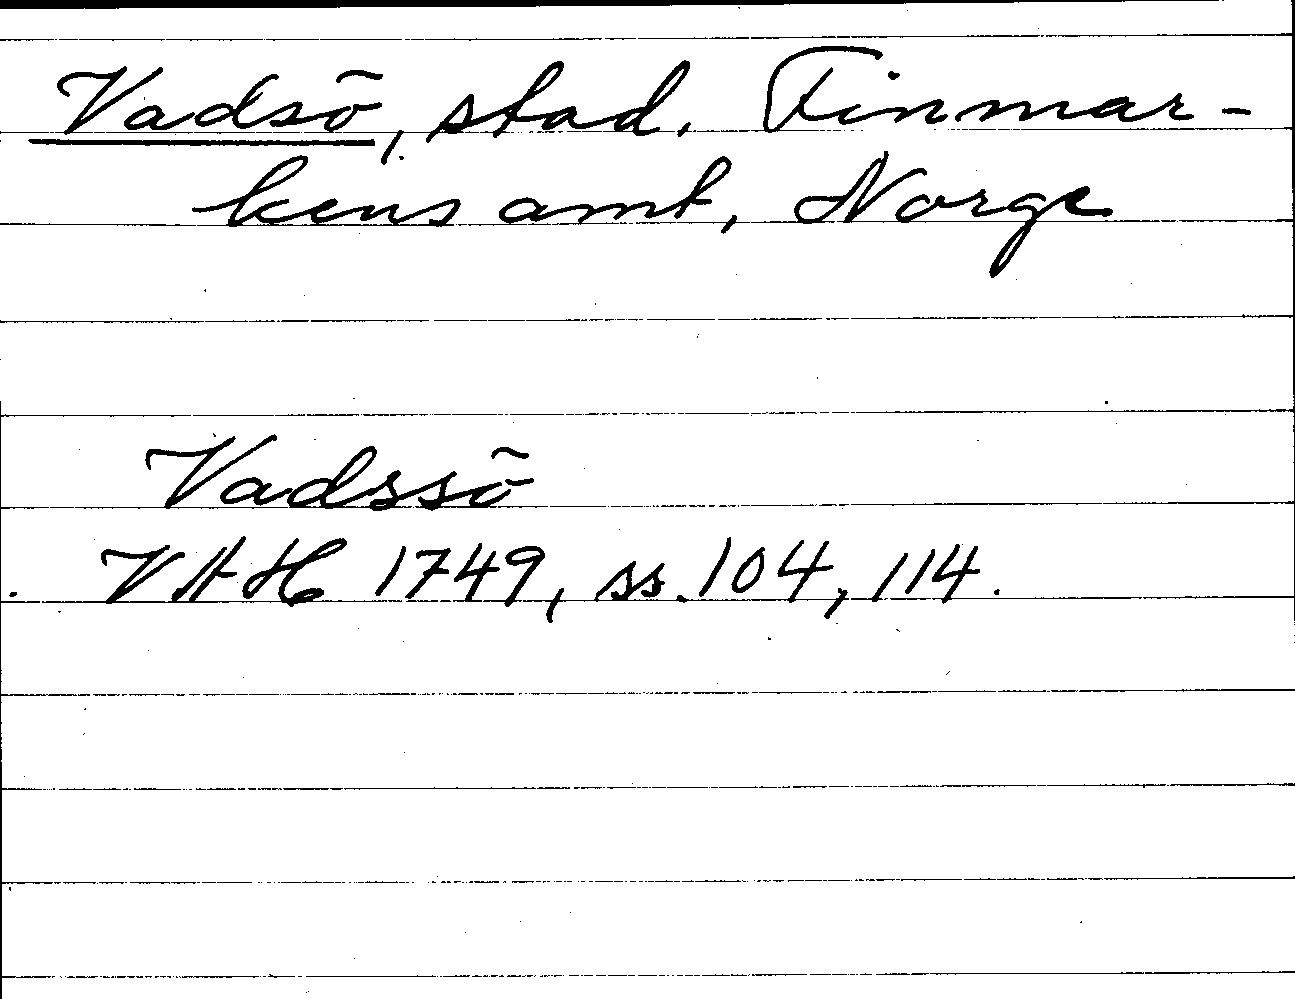 Vadsö, stad. Finmar-
kens amt, Norge
Vadssö
VAH 1749, ss. 104, 114.